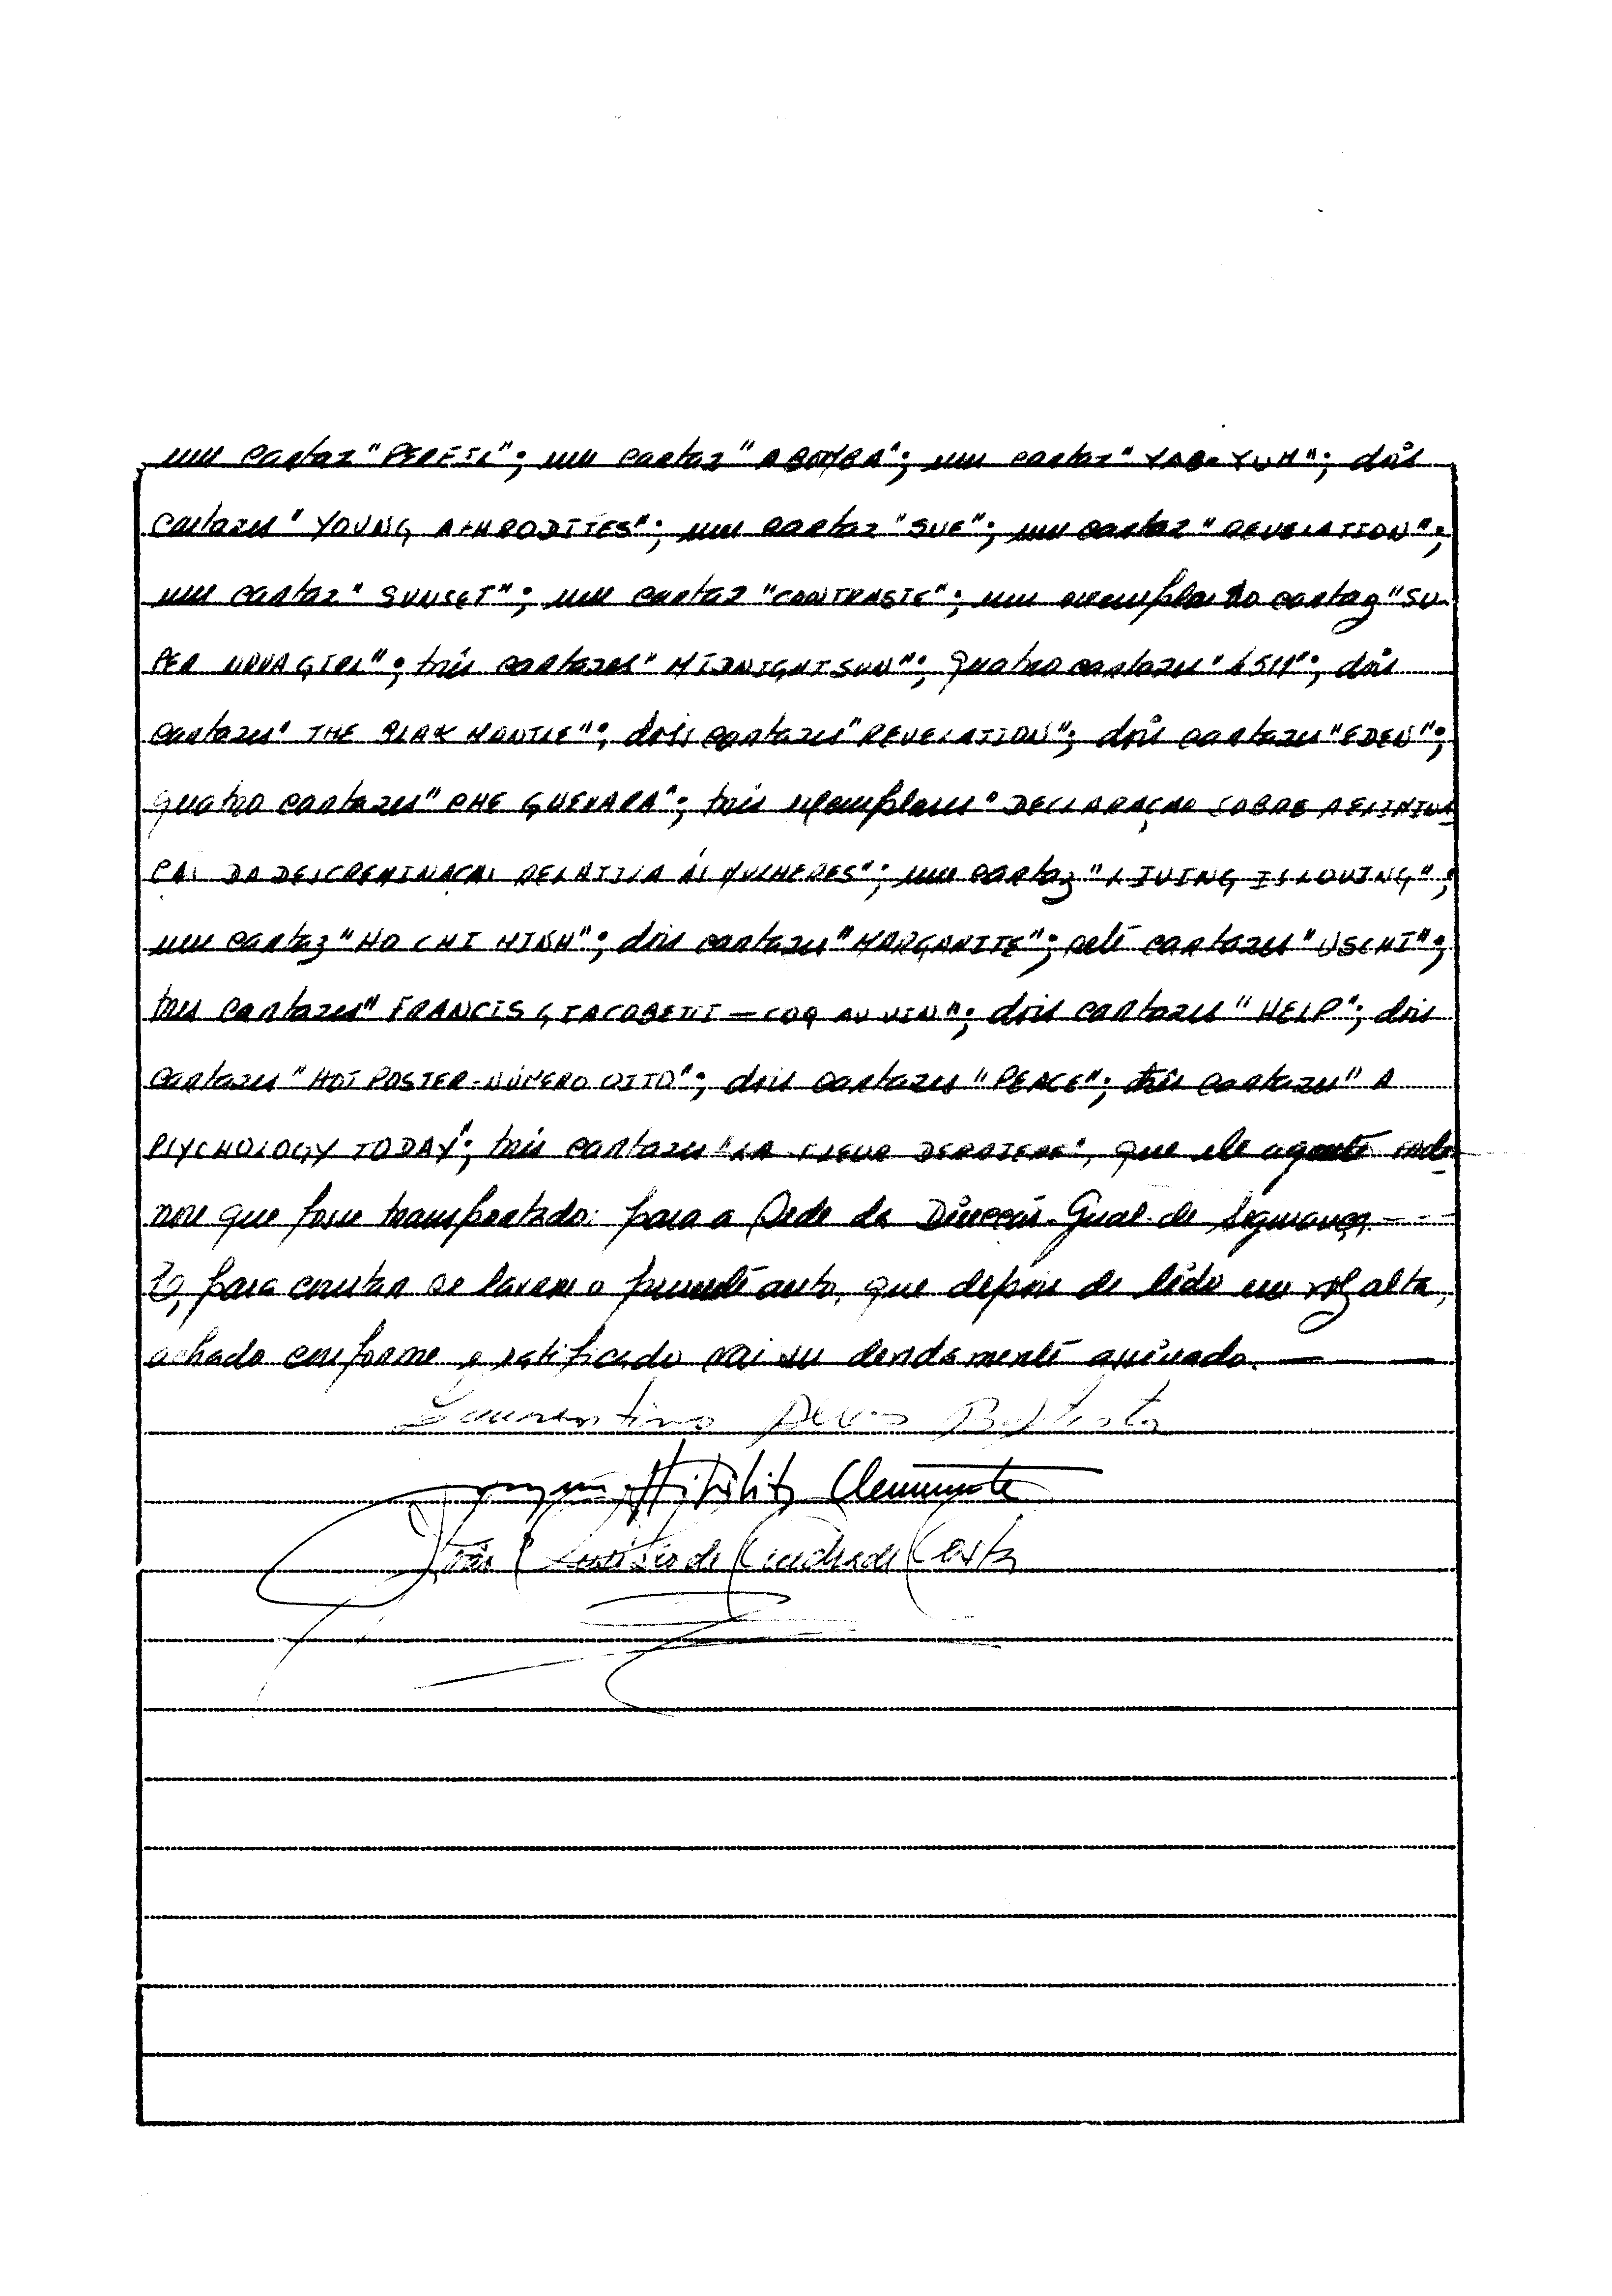 um cartaz "PERFIL"; um cartaz "A BOMBA"; um cartaz "YAB-YUM"; dois
cartazes "YOUNG APHRODITES"; um cartaz "SUE"; um cartaz "REVELATION";
um cartaz "SUNSET"; um cartaz "CONTRASTE"; um exemplar do cartaz "SU-
PER NOVA GIRL"; três cartazes "MIDNIGHT SUN"; quatro cartazes; dois
cartazes "THE BLAK MANTLE"; dois cartazes "REVELATION"; dois cartazes "EDEN";
quatro cartazes "CHE GUEVARA"; três exemplares "DECLARAÇÃO SOBRE A ELIMINA
ÇÃO DA DESCREMINAÇÃO RELATIVA ÀS MULHERES"; um cartaz "LIVING IS LOVING";
um cartaz "HO CHI MINH"; dois cartazes "MARGARITE"; sete cartazes "USCHI";
três cartazes "FRANCIS GIACOBETTI — COQ AU VIN"; dois cartazes "HELP"; dois
cartazes "HOT POSTER - NÚMERO OITO"; dois cartazes "PEACE"; três cartazes "A
PSYCHOLOGY TODAY"; três cartazes "LA FLEUR DERRIERE", que ele agente orde-
nou que fosse transportado para a Sede da Direcção-Geral de Segurança. ---
E, para constar se lavrou o presente auto, que depois de lido em voz alta,
achado conforme e ratificado vai ser devidamente assinado. — —
Laurentino Alves Baptista
Joaquim Hipólito Clemente
João de Andrade Costa